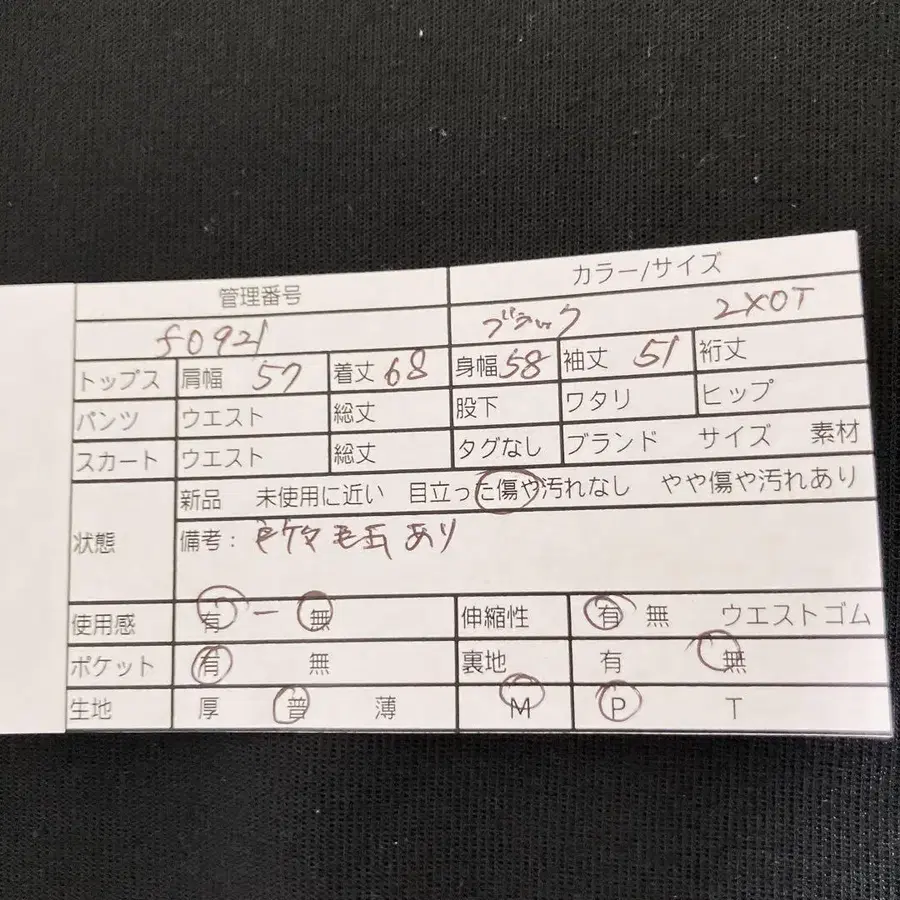 管理番号 カラー/サイズ
f0921 ブラック 2XOT
トップス 肩幅 57 着丈 68 身幅 58 袖丈 51 裄丈
パンツ ウエスト 総丈 股下 ワタリ ヒップ
スカート ウエスト 総丈 タグなし ブランド サイズ 素材
状態 新品 未使用に近い 目立った傷や汚れなし やや傷や汚れあり
備考: あり
使用感 有 ー 無 伸縮性 有 無 ウエストゴム
ポケット 有 無 裏地 有 無
生地 厚 普 薄 M P T